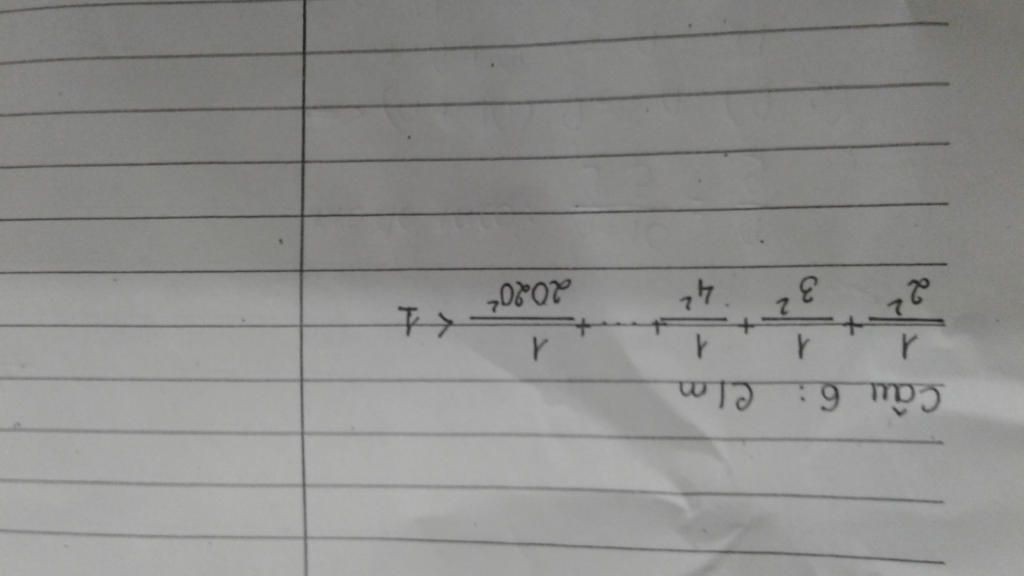 Câu 6: C/m
1/2² + 1/3² + 1/4² + ... + 1/2020² < 1